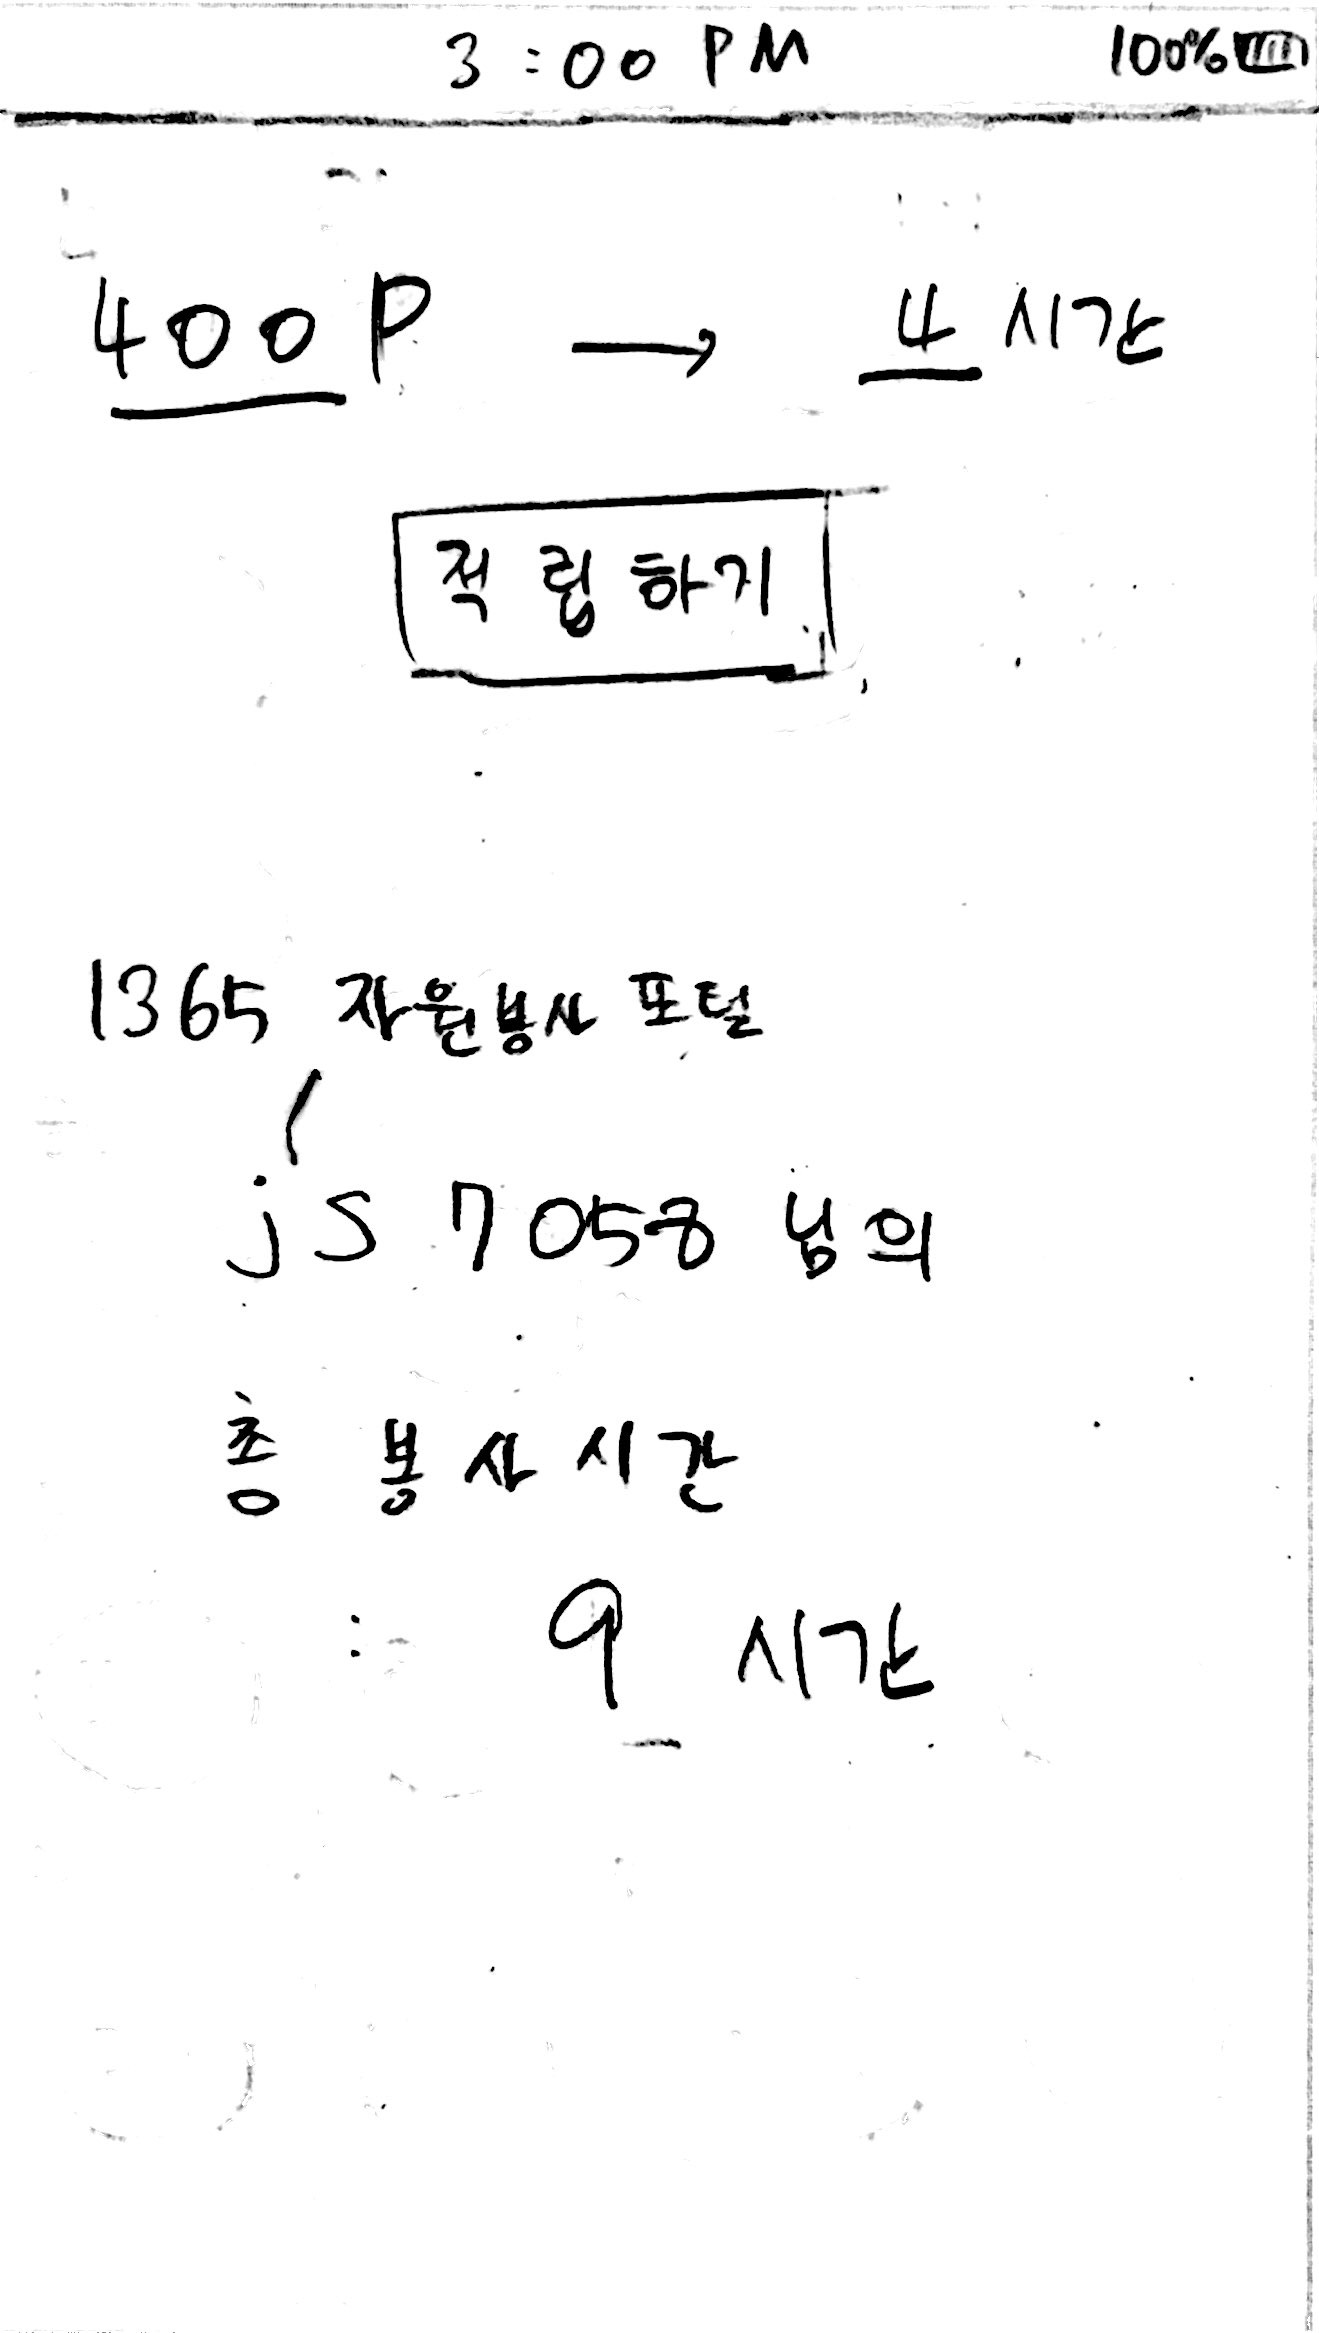 3:00 PM 100%
400P → 4 시간
적립하기
1365 자원봉사 포털
js 7058 님의
총 봉사시간
: 9 시간